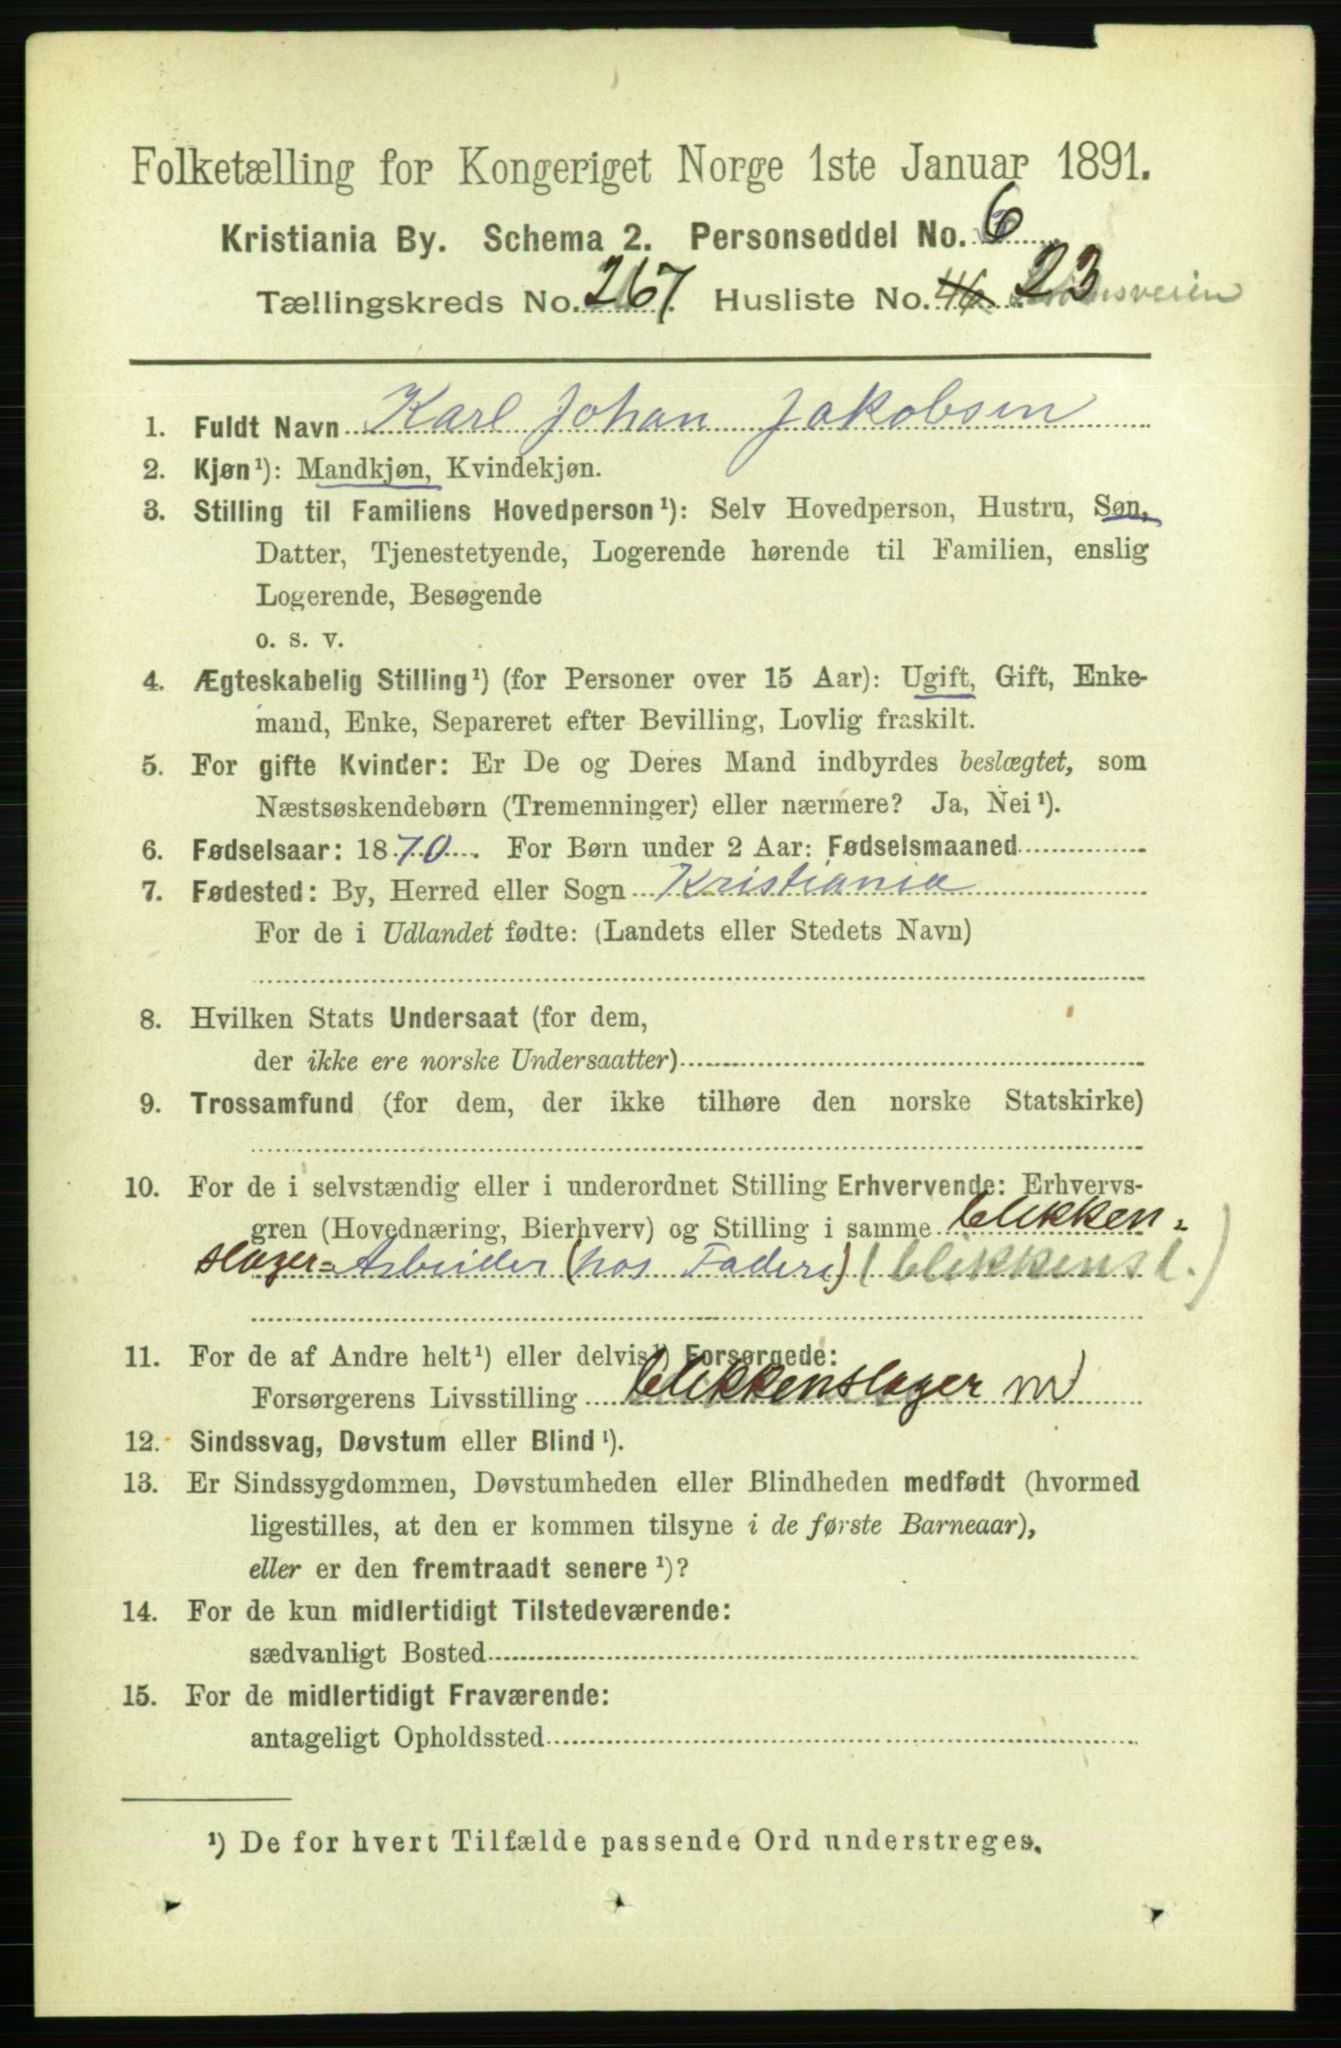 Folketælling for Kongeriget Norge 1ste Januar 1891.
Kristiania By. Schema 2. Personseddel No. 6
Tællingskreds No. 267. Husliste No. 46 23
1. Fuldt Navn Karl Johan Jakobsen
2. Kjøn¹): Mandkjøn, Kvindekjøn.
3. Stilling til Familiens Hovedperson¹): Selv Hovedperson, Hustru, Søn,
Datter, Tjenestetyende, Logerende hørende til Familien, enslig
Logerende, Besøgende
o. s. v.
4. Ægteskabelig Stilling¹) (for Personer over 15 Aar): Ugift, Gift, Enke-
mand, Enke, Separeret efter Bevilling, Lovlig fraskilt.
5. For gifte Kvinder: Er De og Deres Mand indbyrdes beslægtet, som
Næstsøskendebørn (Tremenninger) eller nærmere? Ja, Nei¹).
6. Fødselsaar: 1870. For Børn under 2 Aar: Fødselsmaaned
7. Fødested: By, Herred eller Sogn Kristiania
For de i Udlandet fødte: (Landets eller Stedets Navn)
8. Hvilken Stats Undersaat (for dem,
der ikke ere norske Undersaatter)
9. Trossamfund (for dem, der ikke tilhøre den norske Statskirke)
10. For de i selvstændig eller i underordnet Stilling Erhvervende: Erhvervs-
gren (Hovednæring, Bierhverv) og Stilling i samme blikken=
slager=Arbeider (hos Fadere) (blikkensl.)
11. For de af Andre helt¹) eller delvis¹) Forsørgede:
Forsørgerens Livsstilling blikkenslager m
12. Sindssvag, Døvstum eller Blind¹).
13. Er Sindssygdommen, Døvstumheden eller Blindheden medfødt (hvormed
ligestilles, at den er kommen tilsyne i de første Barneaar),
eller er den fremtraadt senere¹)?
14. For de kun midlertidigt Tilstedeværende:
sædvanligt Bosted
15. For de midlertidigt Fraværende:
antageligt Opholdssted
¹) De for hvert Tilfælde passende Ord understreges.